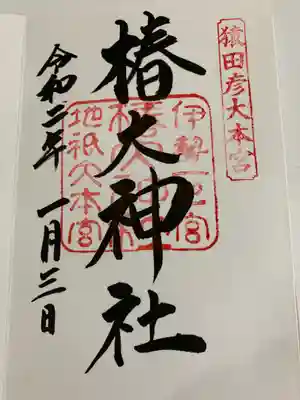 猿田彦大本宮
伊勢一宮
椿大神社
地祇大本宮
令和二年 一月三日